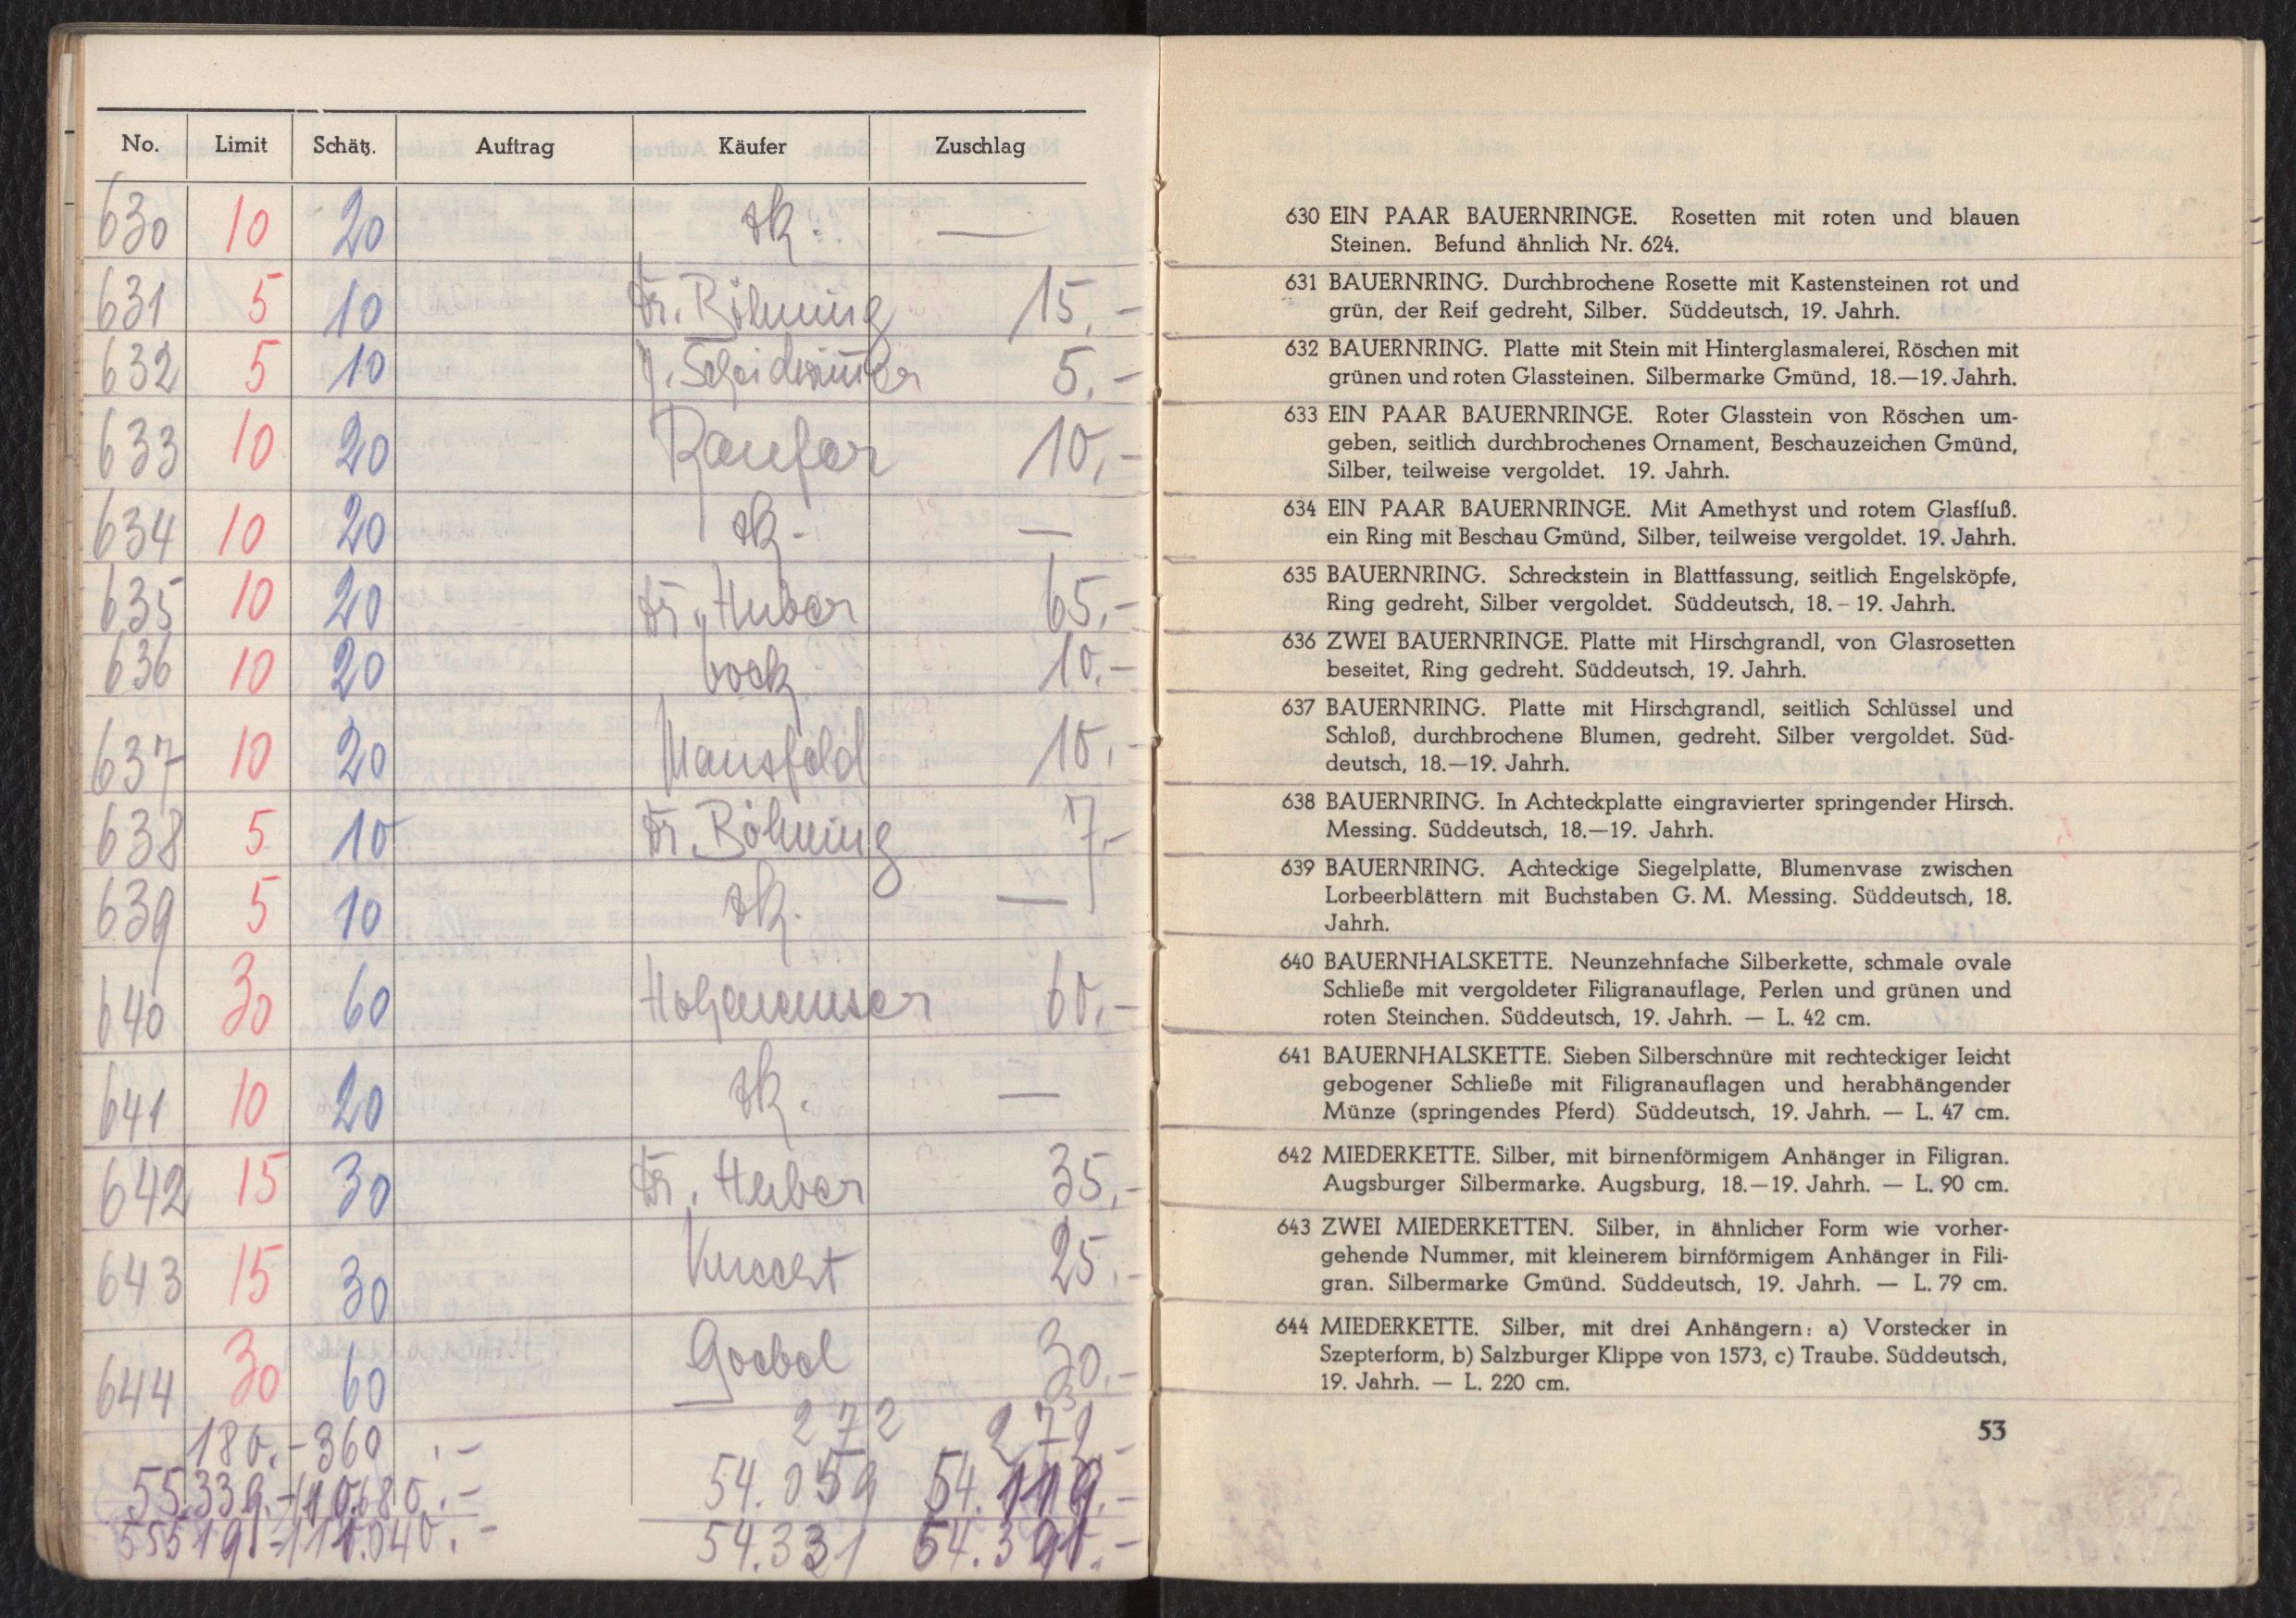 No. Limit Schätz. Auftrag Käufer Zuschlag
630 10 20 zk. —
631 5 10 Dr. Röhning 15.-
632 5 10 J. Scheidwimmer 5.-
633 10 20 10.-
634 10 20 zk. —
635 10 20 Dr. Huber 65.-
636 10 20 bock 10.-
637 10 20 Mansfeld 10.-
638 5 10 Dr. Röhning 7.-
639 5 10 zk. —
640 30 60 60.-
641 10 20 zk. —
642 15 30 Dr. Huber 35.-
643 15 30 Knecht 25.-
644 30 60 Goebel 30.-
180.- 360.- 272 272.-
55.339.- 110.680.- 54.059 54.119.-
55519.- 111.040.- 54.331 54.391.-
630 EIN PAAR BAUERNRINGE. Rosetten mit roten und blauen
Steinen. Befund ähnlich Nr. 624.
631 BAUERNRING. Durchbrochene Rosette mit Kastensteinen rot und
grün, der Reif gedreht, Silber. Süddeutsch, 19. Jahrh.
632 BAUERNRING. Platte mit Stein mit Hinterglasmalerei, Röschen mit
grünen und roten Glassteinen. Silbermarke Gmünd, 18.—19. Jahrh.
633 EIN PAAR BAUERNRINGE. Roter Glasstein von Röschen um-
geben, seitlich durchbrochenes Ornament, Beschauzeichen Gmünd,
Silber, teilweise vergoldet. 19. Jahrh.
634 EIN PAAR BAUERNRINGE. Mit Amethyst und rotem Glasfluß.
ein Ring mit Beschau Gmünd, Silber, teilweise vergoldet. 19. Jahrh.
635 BAUERNRING. Schreckstein in Blattfassung, seitlich Engelsköpfe,
Ring gedreht, Silber vergoldet. Süddeutsch, 18.–19. Jahrh.
636 ZWEI BAUERNRINGE. Platte mit Hirschgrandl, von Glasrosetten
beseitet, Ring gedreht. Süddeutsch, 19. Jahrh.
637 BAUERNRING. Platte mit Hirschgrandl, seitlich Schlüssel und
Schloß, durchbrochene Blumen, gedreht. Silber vergoldet. Süd-
deutsch, 18.—19. Jahrh.
638 BAUERNRING. In Achteckplatte eingravierter springender Hirsch.
Messing. Süddeutsch, 18.—19. Jahrh.
639 BAUERNRING. Achteckige Siegelplatte, Blumenvase zwischen
Lorbeerblättern mit Buchstaben G. M. Messing. Süddeutsch, 18.
Jahrh.
640 BAUERNHALSKETTE. Neunzehnfache Silberkette, schmale ovale
Schließe mit vergoldeter Filigranauflage, Perlen und grünen und
roten Steinchen. Süddeutsch, 19. Jahrh. — L. 42 cm.
641 BAUERNHALSKETTE. Sieben Silberschnüre mit rechteckiger leicht
gebogener Schließe mit Filigranauflagen und herabhängender
Münze (springendes Pferd) Süddeutsch, 19. Jahrh. — L. 47 cm.
642 MIEDERKETTE. Silber, mit birnenförmigem Anhänger in Filigran.
Augsburger Silbermarke. Augsburg, 18.—19. Jahrh. — L. 90 cm.
643 ZWEI MIEDERKETTEN. Silber, in ähnlicher Form wie vorher-
gehende Nummer, mit kleinerem birnförmigem Anhänger in Fili-
gran. Silbermarke Gmünd. Süddeutsch, 19. Jahrh. — L. 79 cm.
644 MIEDERKETTE. Silber, mit drei Anhängern: a) Vorstecker in
Szepterform, b) Salzburger Klippe von 1573, c) Traube. Süddeutsch,
19. Jahrh. — L. 220 cm.
53